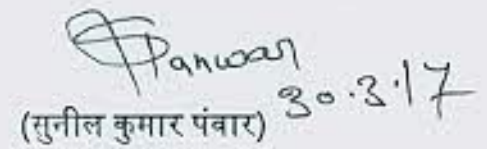 SPanwar
30.3.17
(सुनील कुमार पंवार)